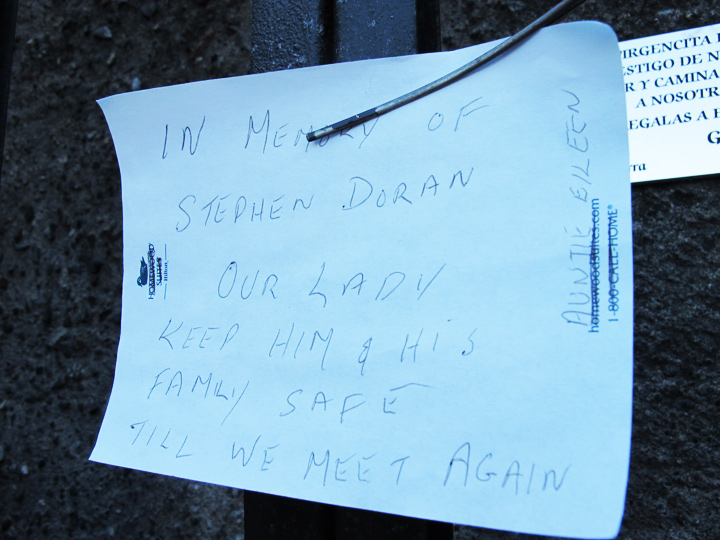 IN MEMORY OF
STEPHEN DORAN
OUR LADY
KEEP HIM & HIS
FAMILY SAFE
TILL WE MEET AGAIN
AUNTIE EILEEN
HOMEWOOD
SUITES
Hilton
homewoodsuites.com
1-800-CALL-HOME®
IRGENCITA
ESTIGO DE N
R Y CAMINA
A NOSOTR
EGALAS A
G
rra